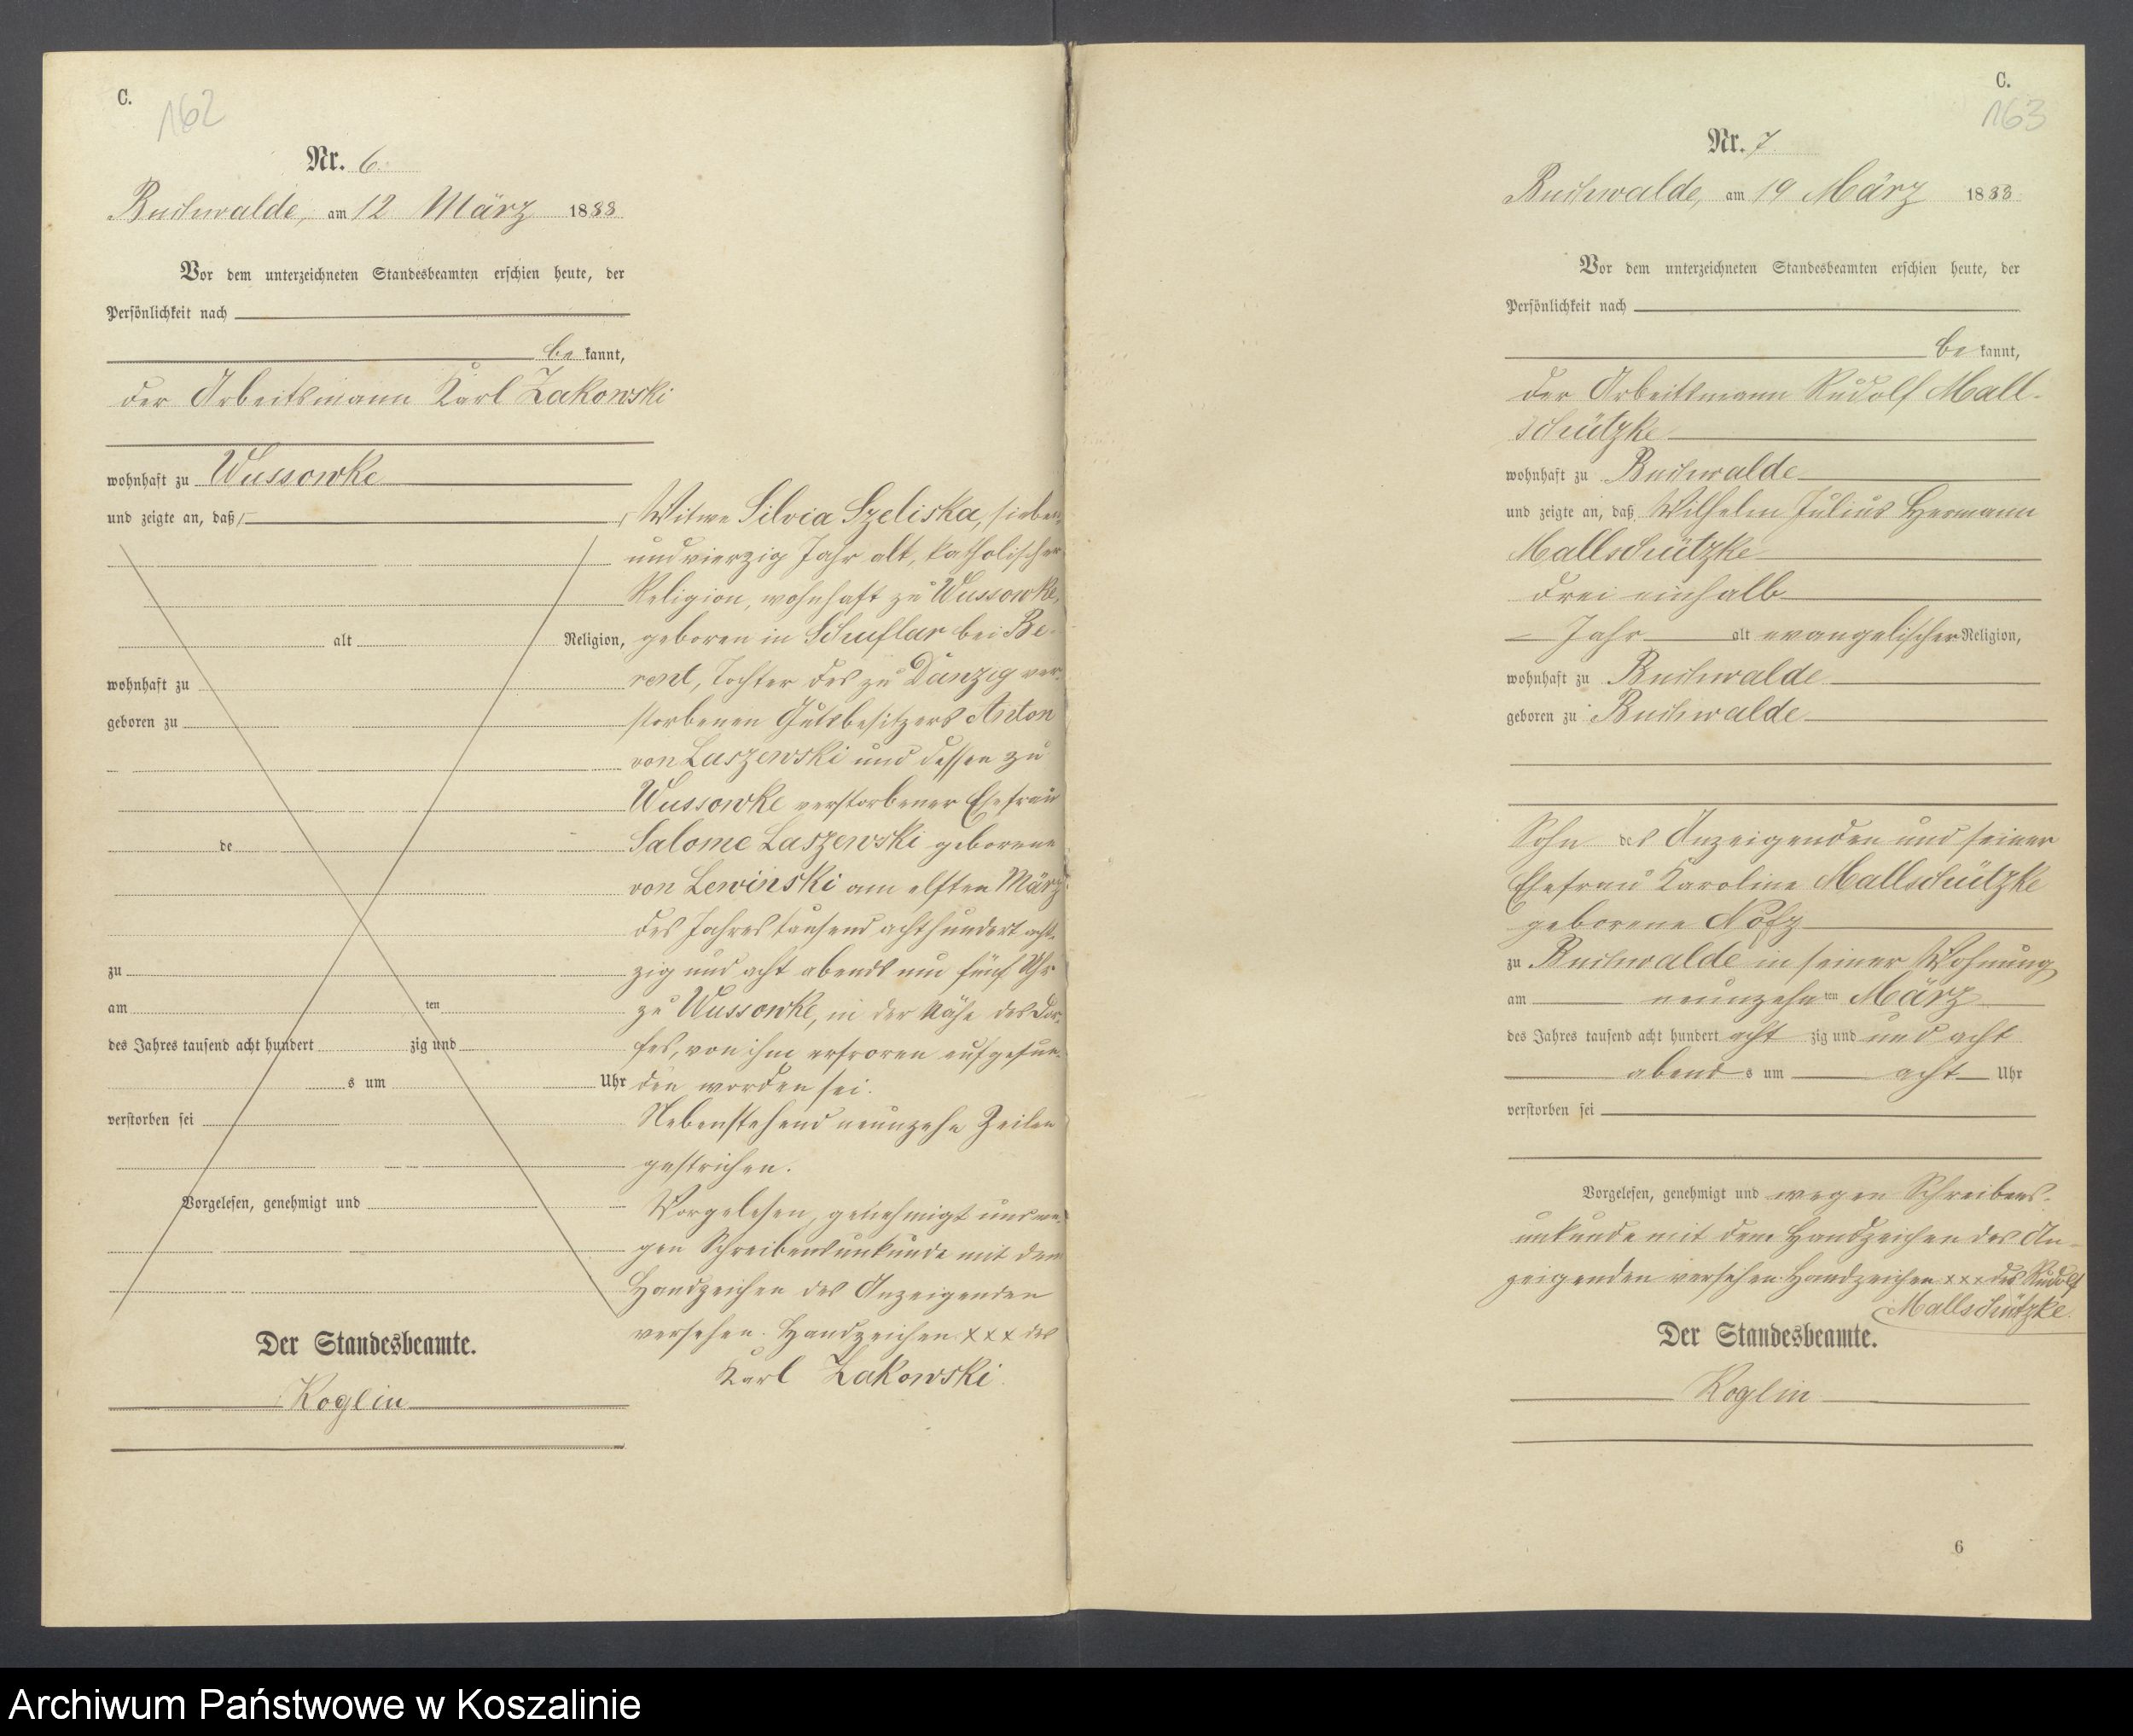 C.
162
Nr. 6.
Buchwalde, am 12 März 1888
Vor dem unterzeichneten Standesbeamten erschien heute, der
Persönlichkeit nach
be kannt,
der Arbeitsmann Karl Zakowski
wohnhaft zu Wussowke
und zeigte an, daß
alt Religion,
wohnhaft zu
geboren zu
de
zu
am ten
des Jahres tausend acht hundert zig und
s um Uhr
verstorben sei
Vorgelesen, genehmigt und
Der Standesbeamte.
Koglin
Witwe Silvia Szeliska, sieben
und vierzig Jahr alt, katholischer
Religion, wohnhaft zu Wussowke,
geboren in Schuflar bei Be-
rent, Tochter des zu Danzig ver-
storbenen Gutsbesitzers Anton
von Laszewski und dessen zu
Wussowke verstorbener Ehefrau
Salome Laszewski geborene
von Lewinski am elften März
des Jahres tausend achthundert acht-
zig und acht abends um fünf Uhr
zu Wussowke, in der Nähe des Dor-
fes, von ihm erfroren aufgefun-
den worden sei.
Nebenstehend neunzehn Zeilen
gestrichen.
Vorgelesen, genehmigt und we-
gen Schreibensunkunde mit dem
Handzeichen des Anzeigenden
versehen. Handzeichen xxx des
Karl Zakowski.
C.
163
Nr. 7
Buchwalde, am 19 März 1888
Vor dem unterzeichneten Standesbeamten erschien heute, der
Persönlichkeit nach
be kannt,
der Arbeitsmann Rudolf Mall-
schützke
wohnhaft zu Buchwalde
und zeigte an, daß Wilhelm Julius Hermann
Mallschützke
drei einhalb
Jahr alt evangelischer Religion,
wohnhaft zu Buchwalde
geboren zu Buchwalde
Sohn des Anzeigenden und seiner
Ehefrau Karoline Mallschützke
geborene Notz
zu Buchwalde in seiner Wohnung
am neunzehn ten März
des Jahres tausend acht hundert acht zig und und acht
abend s um acht Uhr
verstorben sei
Vorgelesen, genehmigt und wegen Schreibens-
unkunde mit dem Handzeichen des An-
zeigenden versehen Handzeichen xxx des Rudolf
Mallschützke.
Der Standesbeamte.
Koglin
6
Archiwum Państwowe w Koszalinie